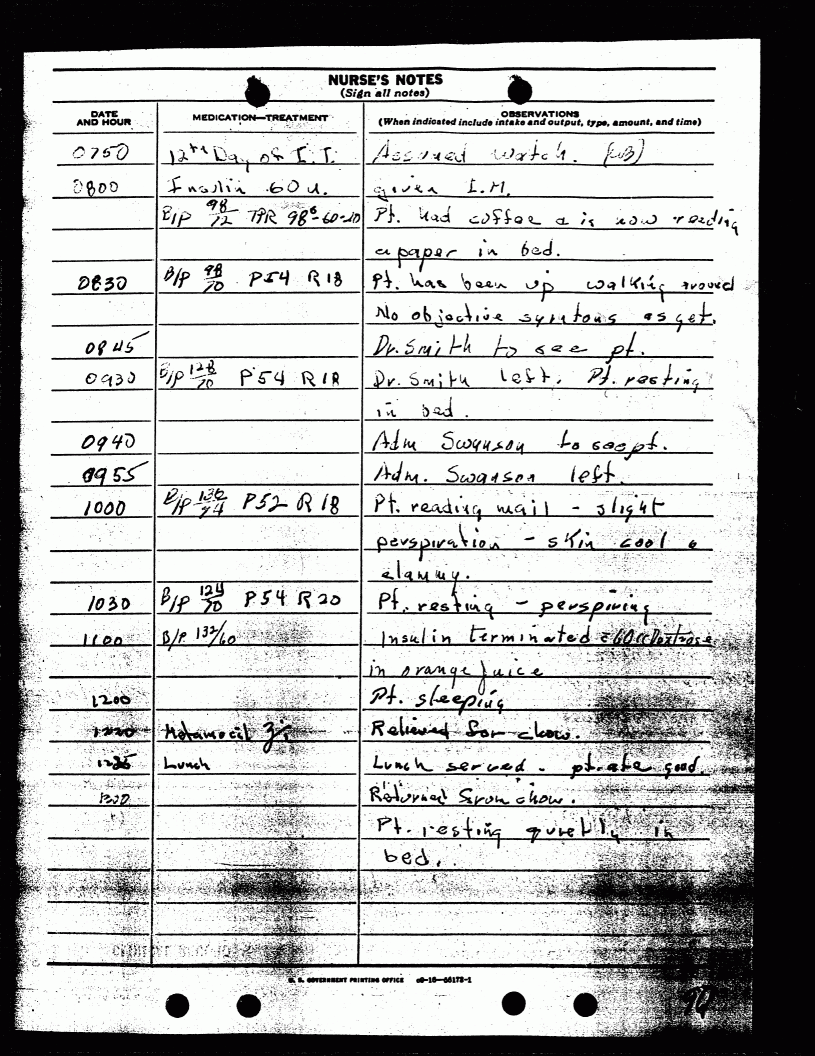 NURSE'S NOTES
(Sign all notes)
DATE AND HOUR MEDICATION—TREATMENT OBSERVATIONS (When indicated include intake and output, type, amount, and time)
0750 12th Day of I.T. Assumed watch.
0800 Insulin 60 u. given I.M.
B/P 98/72 TPR 98⁶-60-20 Pt. had coffee & is now reading
a paper in bed.
0830 B/P 98/70 P54 R18 Pt. has been up walking around
No objective symtoms as yet.
0845 Dr. Smith to see pt.
0930 B/P 128/70 P54 R18 Dr. Smith left. Pt. resting
in bed.
0940 Adm Swanson to see pt.
0955 Adm. Swanson left.
1000 B/P P52 R18 Pt. reading mail - slight
perspiration - skin cool &
clammy.
1030 B/P 124/70 P54 R20 Pt. resting - perspiring
1100 B/P. 132/60 Insulin terminated c̄ 60cc Dextrose
in orange juice
1200 Pt. sleeping
1220 Metamucil ℥i Relieved for chow.
1235 Lunch Lunch served. pt. ate good.
1300 Returned from chow.
Pt. resting quietly in
bed.
U. S. GOVERNMENT PRINTING OFFICE